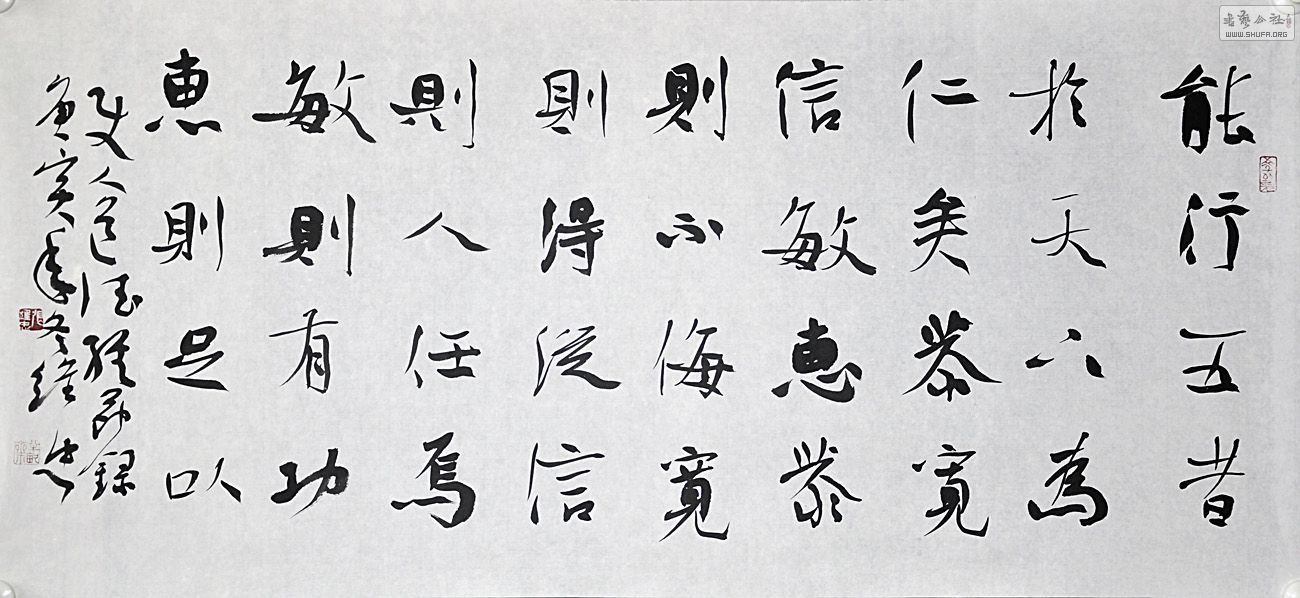 能行五者
於天下為
仁矣恭寬
信敏惠恭
則不侮寬
則得從信
則人任焉
敏則有功
惠則足以
使人道德錄
寅年冬維忠
書藝公社
WWW.SHUFA.ORG